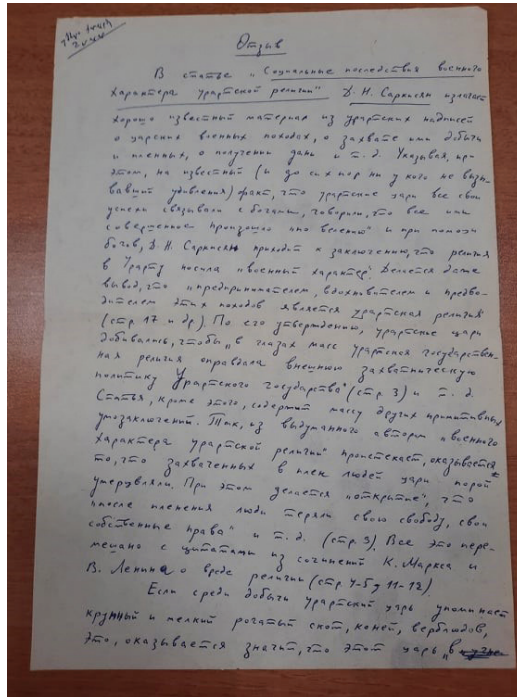 Отзыв
В статье „Социальные последствия военного
характера урартской религии" Д. Н. Саркисян излагает
хорошо известный материал из урартских надписей
о царских военных походах, о захвате ими добычи
и пленных, о получении дани и т. д. Указывая, при
этом, на известный (и до сих пор ни у кого не вызы-
вавший удивления) факт, что урартские цари все свои
успехи связывали с богами, говорили, что все ими
совершенное произошло „по велению" и при помощи
богов, Д. Н. Саркисян приходит к заключению, что религия
в Урарту носила „военный характер". Делается даже
вывод, что „предпринимателем, вдохновителем и предво-
дителем этих походов является урартская религия
(стр. 17 и др). По его утверждению, урартские цари
добивались, чтобы „в глазах масс урартская государствен-
ная религия оправдала внешнюю захватническую
политику Урартского государства" (стр. 3) и т. д.
Статья, кроме этого, содержит массу других примитивных
умозаключений. Так, из выдуманного автором „военного
характера урартской религии" проистекает, оказывается
то, что захваченных в плен людей цари порой
умерщвляли. При этом делается „открытие", что
„после пленения люди теряли свою свободу, свои
собственные права" и т. д. (стр. 9). Все это пере-
мешано с цитатами из сочинений К. Маркса и
В. Ленина о вреде религии (стр. 4-5 и 11-12).
Если среди добычи урартский царь упоминает
крупный и мелкий рогатый скот, коней, верблюдов,
это, оказывается значит, что этот царь „в